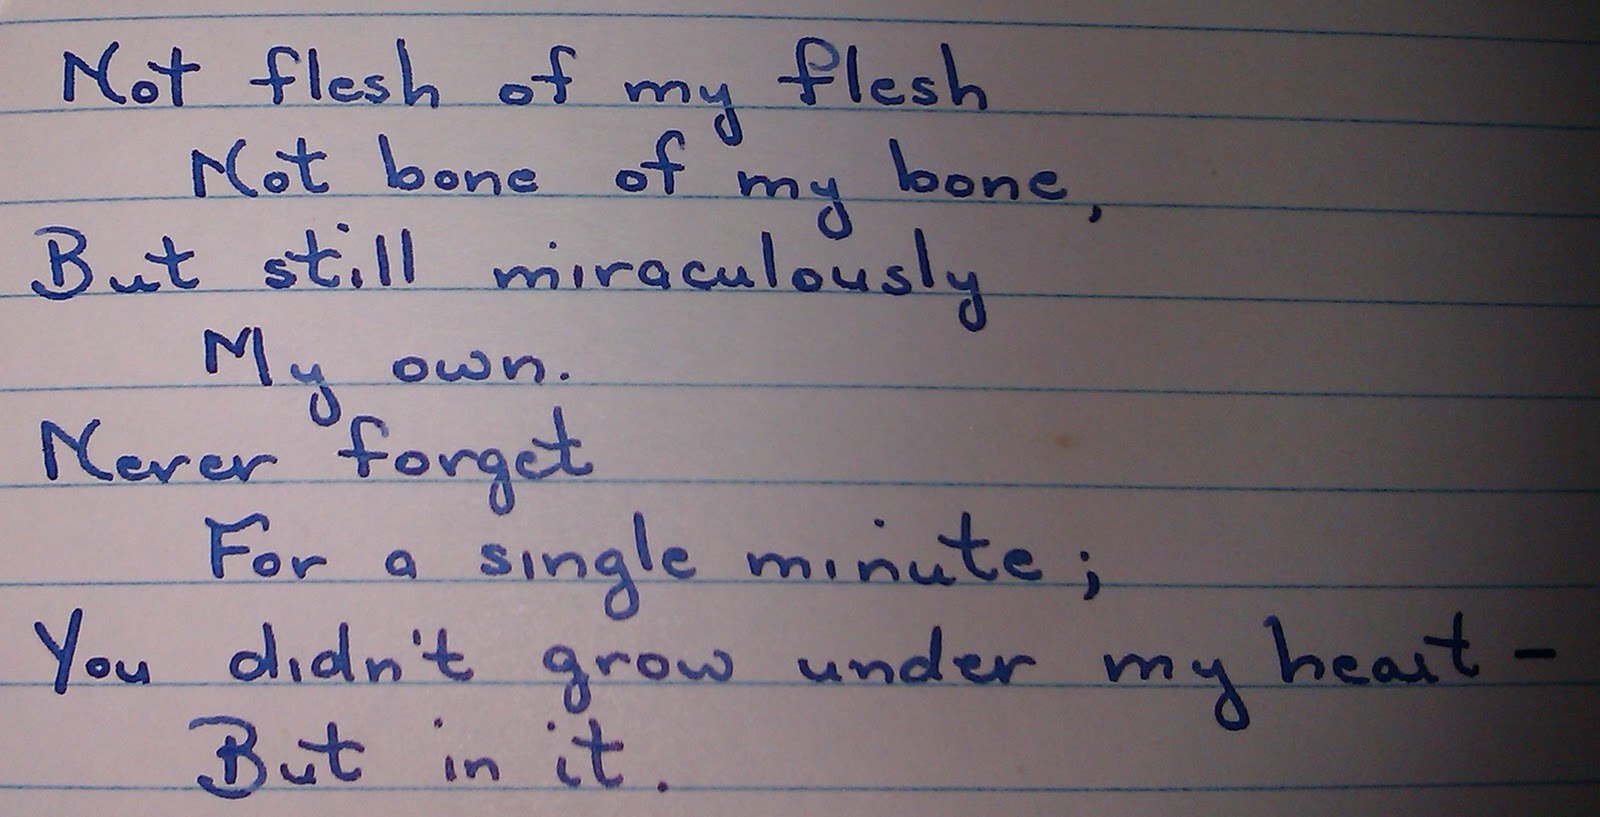 Not flesh of my flesh
Not bone of my bone,
But still miraculously
My own.
Never forget
For a single minute;
You didn't grow under my heart -
But in it.